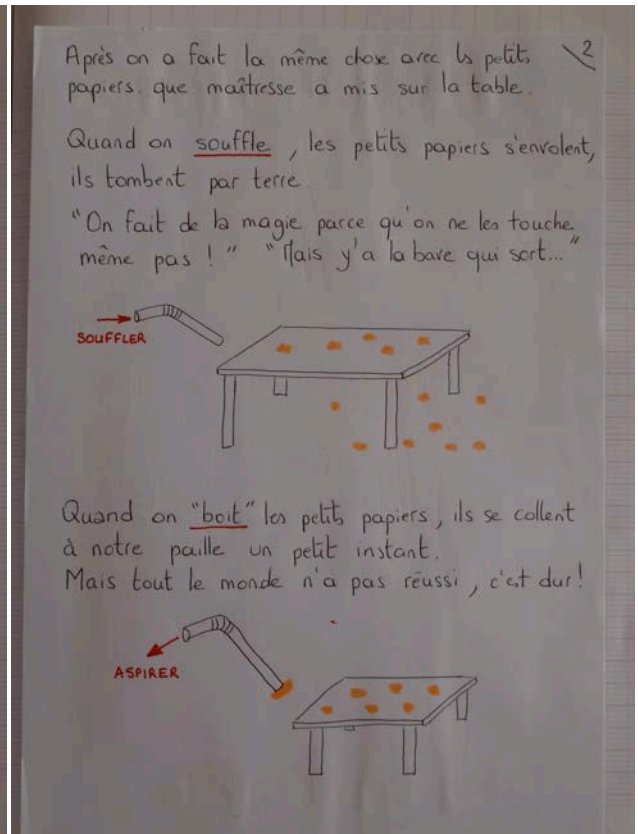 Après on a fait la même chose avec ls petits
2
papiers. que maîtresse a mis sur la table.
Quand on souffle, les petits papiers s'envolent,
ils tombent par terre.
"On fait de la magie parce qu'on ne les touche
même pas !" "Mais y'a la bave qui sort..."
SOUFFLER
Quand on "boit" les petits papiers, ils se collent
à notre paille un petit instant.
Mais tout le monde n'a pas réussi, c'est dur!
ASPIRER